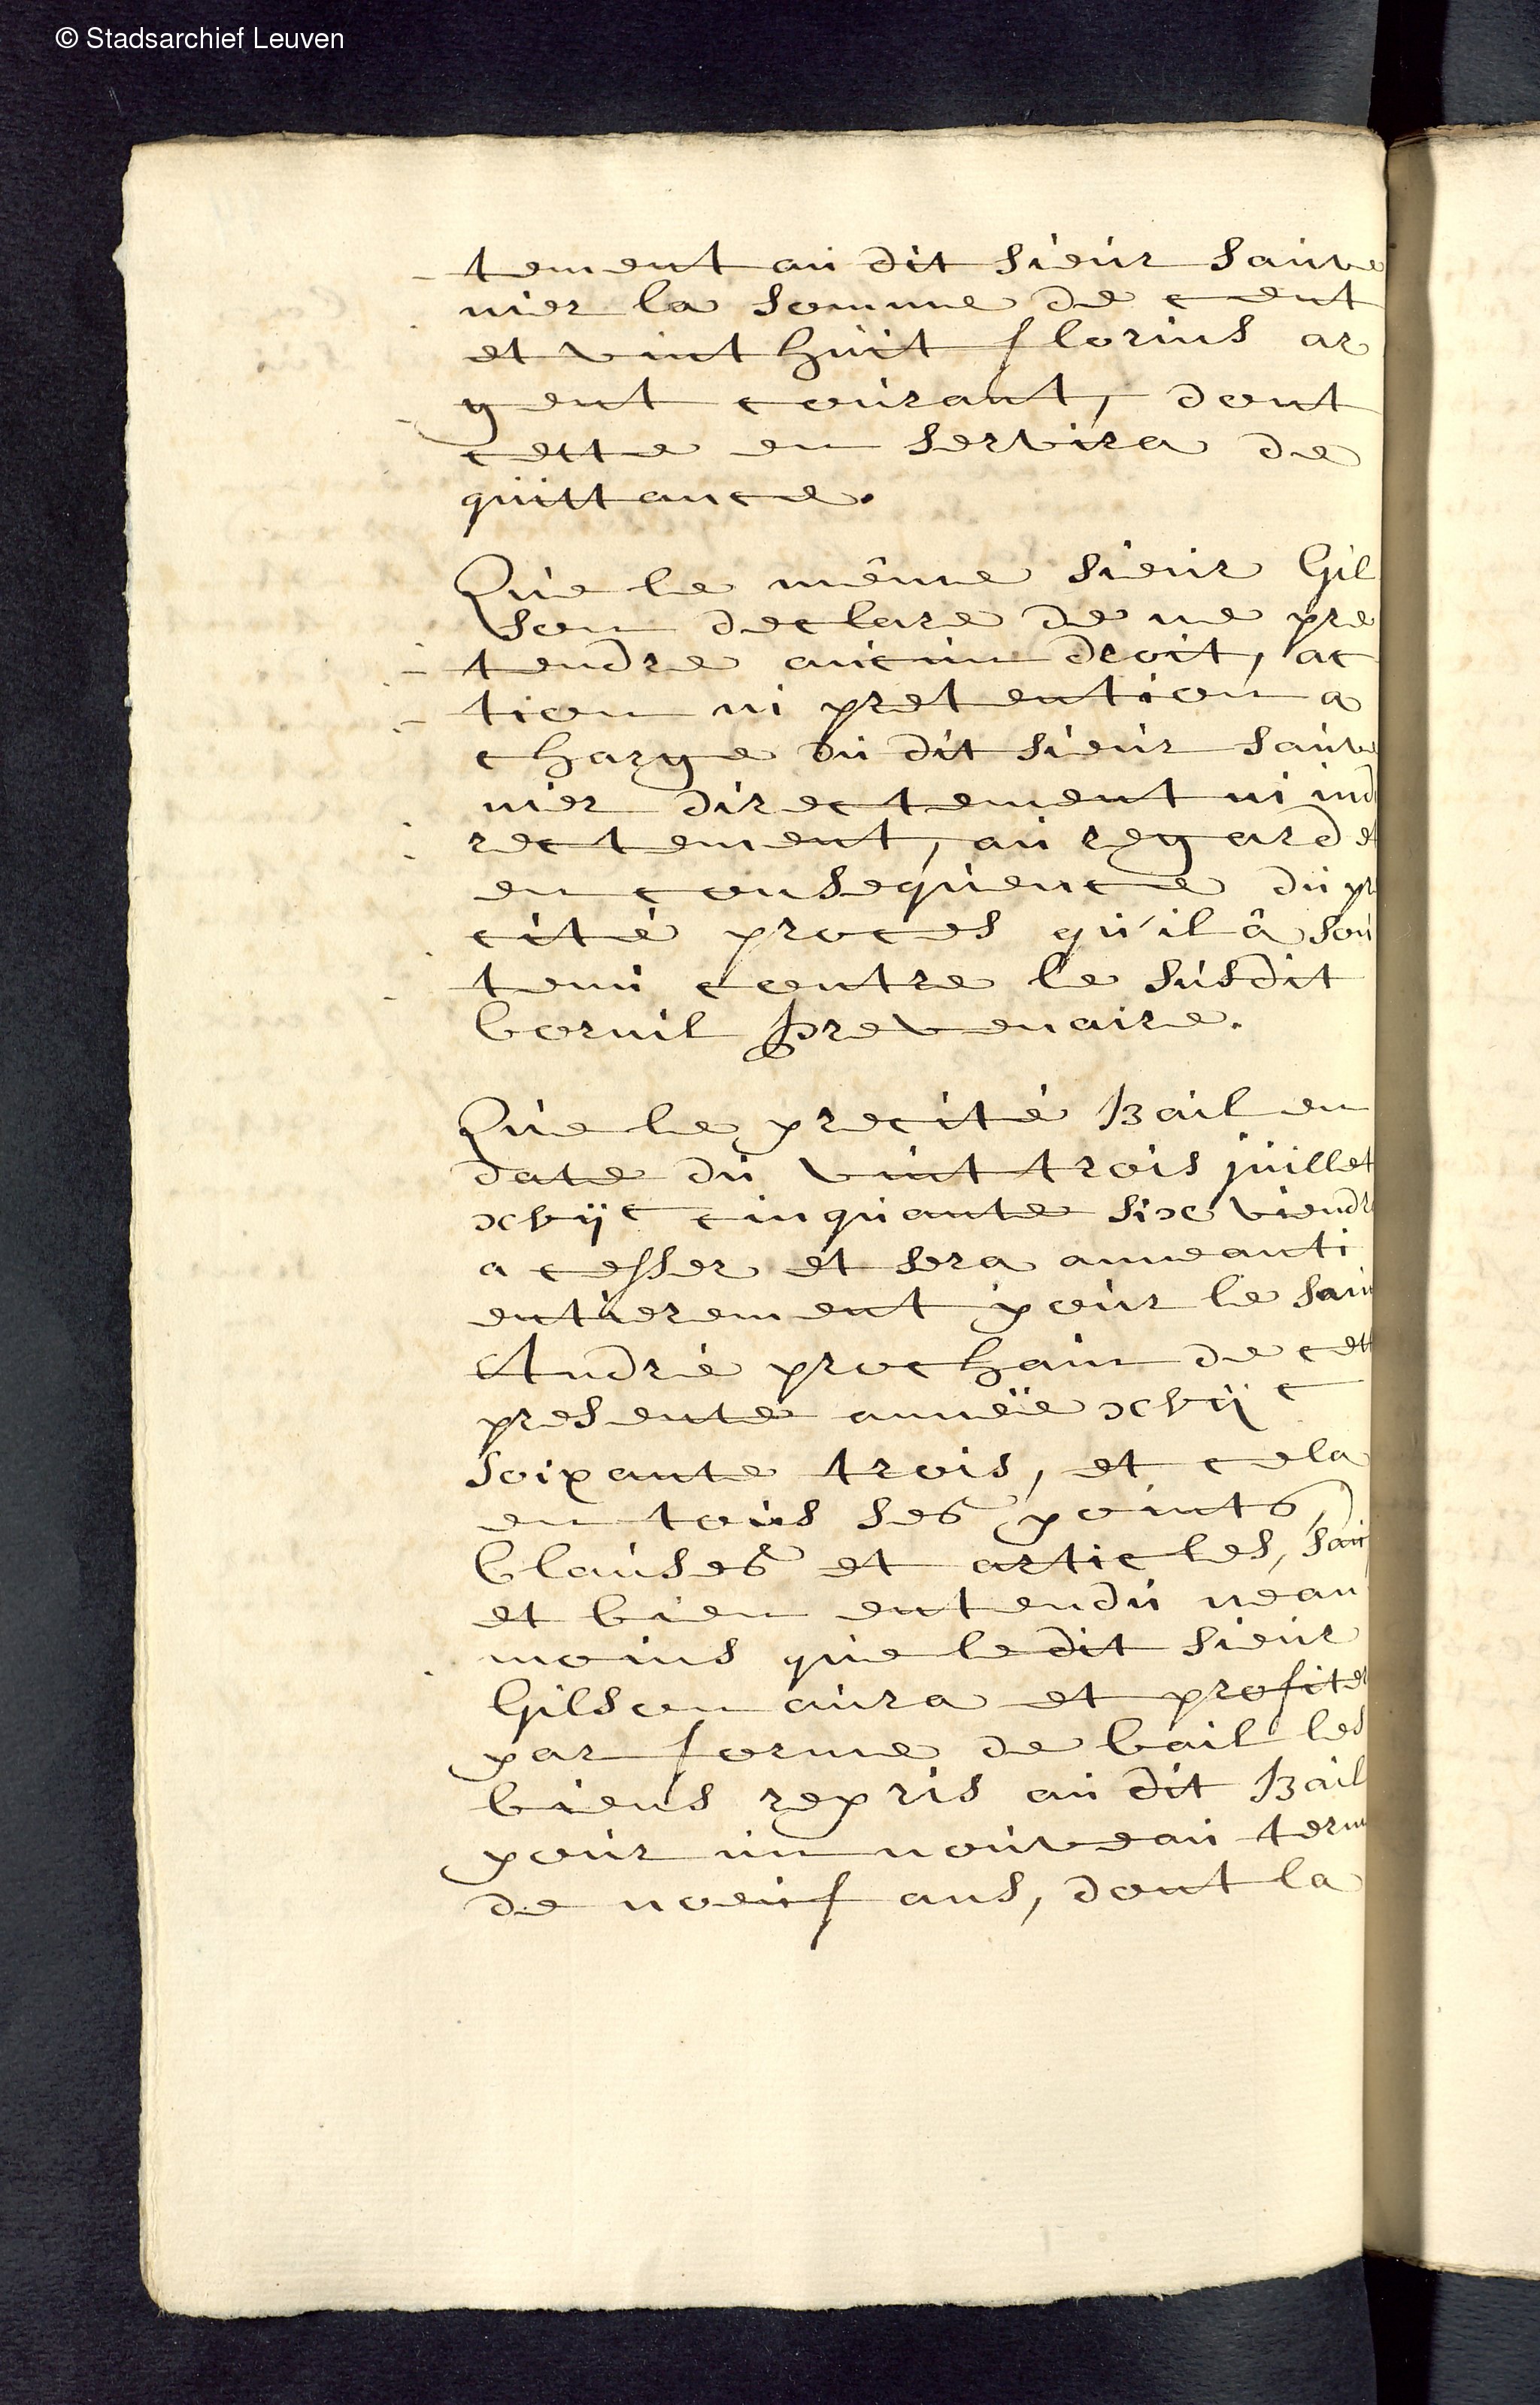 © Stadsarchief Leuven
tement au dit sieur Sauve
nier la somme de cent
et vint huit florins ar
gent courant, dont
cette en servira de
quittance.
Que le même sieur Gil
son declare de ne pre
tendre aucun droit, ac
tion ni pretention a
charge du dit sieur Sauve
nier directement ni ind
rectement, au regard et
en consequence du pr
cité proces qu'il â sou
tenu contre le susdit
Corvil Prevenaire.
Que le precité Bail en
date du vint trois juillet
xvijc cinquante six viendr
a cesser et sera anneanti
entierement pour le Sain
André prochain de cett
presente annëe xvijc
soixante trois, et cela
en tous ses points,
Clauses et articles, sau
et bien entendu nean
moins que ledit sieur
Gilson aura et profiter
par forme de bail les
biens repris au dit Bail
pour un nouveau term
de noeuf ans, dont la